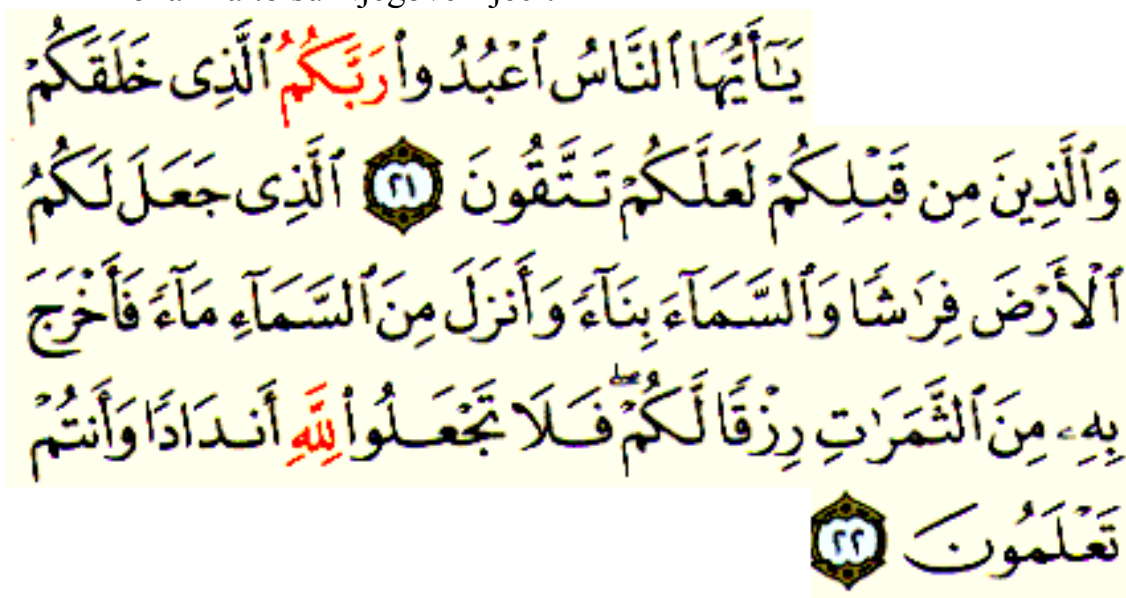 يَـٰٓأَيُّهَا ٱلنَّاسُ ٱعْبُدُوا۟ رَبَّكُمُ ٱلَّذِى خَلَقَكُمْ
وَٱلَّذِينَ مِن قَبْلِكُمْ لَعَلَّكُمْ تَتَّقُونَ ٢١ ٱلَّذِى جَعَلَ لَكُمُ
ٱلْأَرْضَ فِرَٰشًا وَٱلسَّمَآءَ بِنَآءً وَأَنزَلَ مِنَ ٱلسَّمَآءِ مَآءً فَأَخْرَجَ
بِهِۦ مِنَ ٱلثَّمَرَٰتِ رِزْقًا لَّكُمْ ۖ فَلَا تَجْعَلُوا۟ لِلَّهِ أَندَادًا وَأَنتُمْ
تَعْلَمُونَ ٢٢